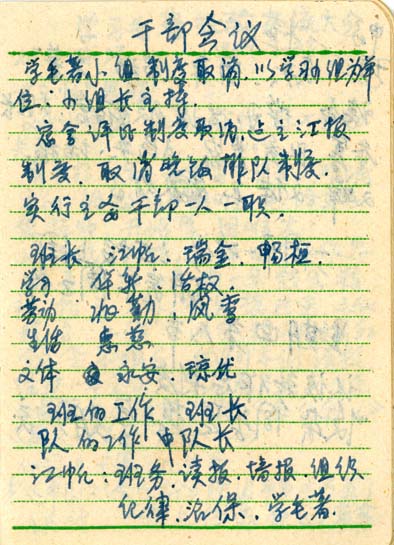 干部会议
学毛著小组制度取消,以学习小组为单
位:小组长主持.
宿舍评比制度取消,建立汇报
制度,取消晚饭排队制度.
实行主要干部一人一职.
班长 江帆、瑞金、畅桓.
学习 治权.
劳动 勤,凤雪
生活 惠慈
文体 永安、琼优
班的工作 班长
队的工作 中队长
江帆:班务、读报、墙报、组织
纪律、治保、学毛著.